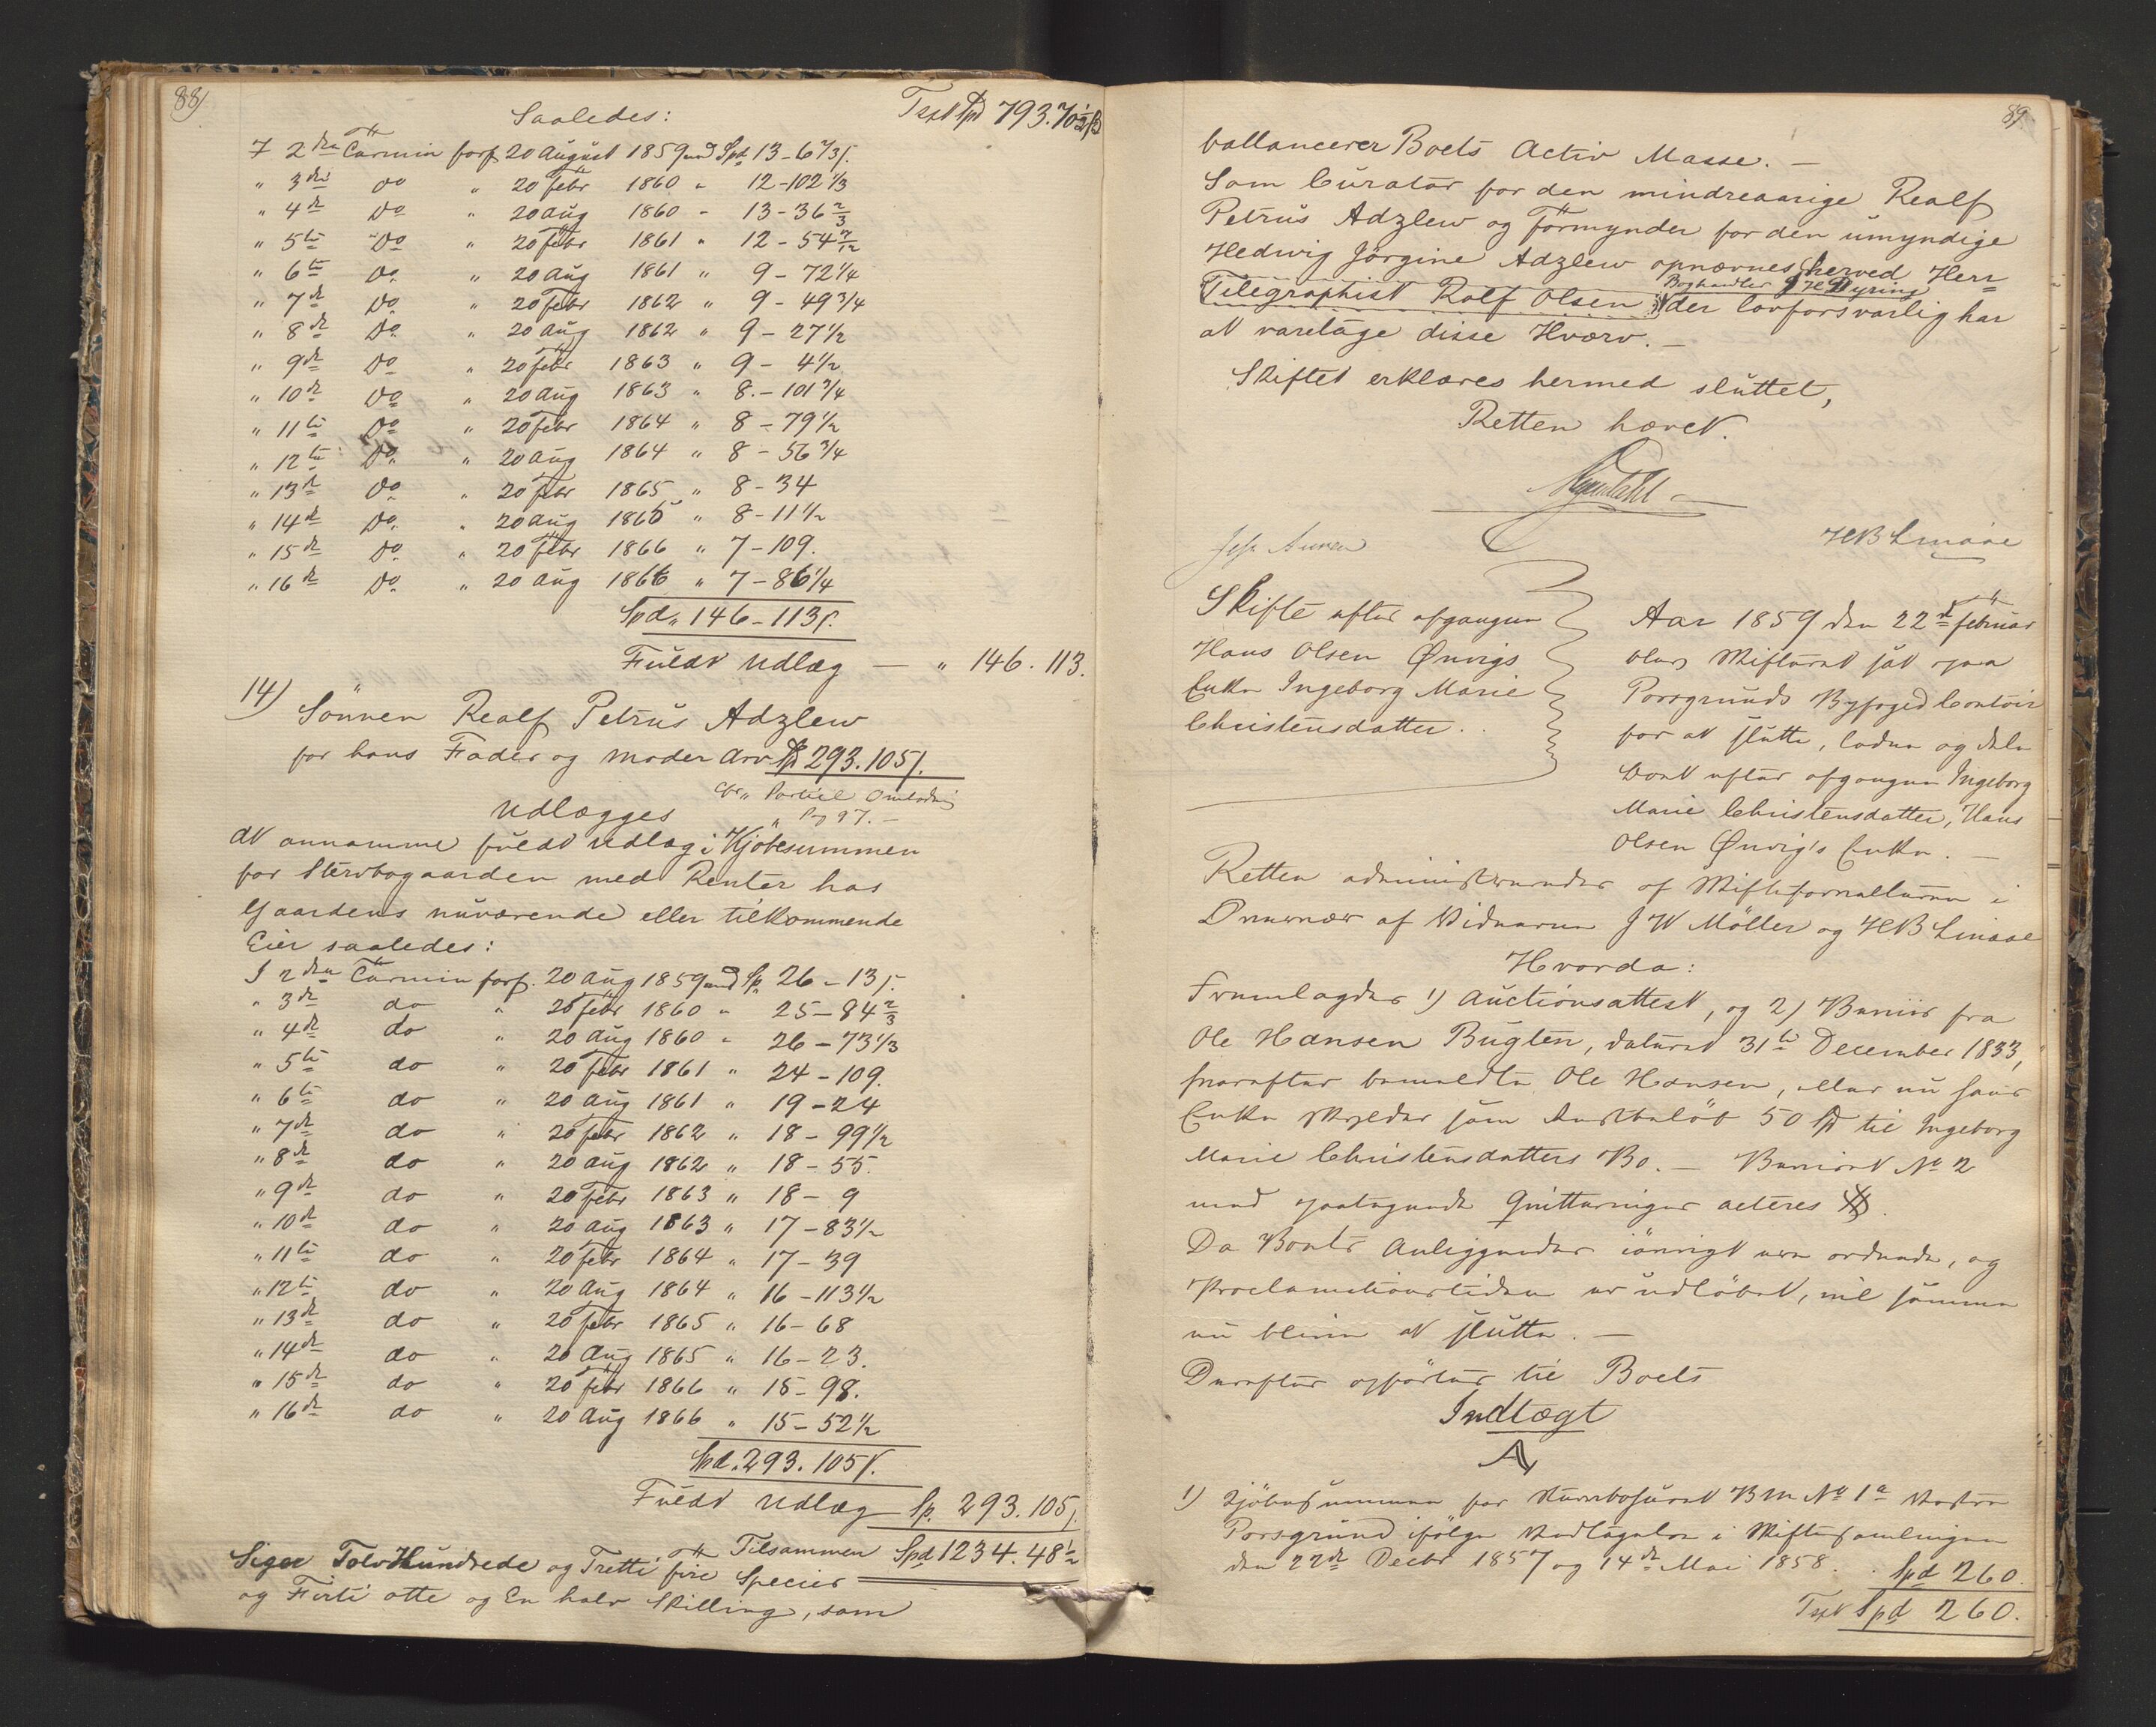 88)
Saaledes:
Txt Spd 793.70½ s
I 2den Termin forf 20 August 1859 med Spd 13-6⅔ s.
" 3die do " 20 Febr 1860 " 12-102⅓
" 4de Do " 20 Aug 1860 - 13-36⅔
" 5te Do " 20 Febr 1861 " 12-54 7/12
" 6te Do " 20 Aug 1861 " 9-72¼
" 7de Do " 20 Febr 1862 " 9-49¾
" 8de Do " 20 Aug 1862 " 9-27½
" 9de Do " 20 Febr 1863 " 9-4½
" 10de Do " 20 Aug 1863 " 8.-101¾
" 11te Do " 20 Febr 1864 " 8-79½
" 12te Do " 20 Aug 1864 " 8-56¾
" 13de Do " 20 Febr 1865 " 8-34
" 14de Do " 20 Aug 1865 " 8-11½
" 15de Do " 20 Febr 1866 " 7-109.
" 16de Do " 20 Aug 1866 " 7-86¼
Spd " 146-113 s.
Fuldt Udlæg — " 146.113.
14) Sönnen Realf Petrus Adzlew
for hans Fader og Moder Arv Spd 293.105 s.
Udlægges
cfr. Partiel Omlodning
" Pag 97.-
At annamme fuldt Udlæg i Kjöbesummen
for Stervbogaarden med Renter hos
Gaardens nuværende eller tilkommende
Eier saaledes:
I 2den Termin forf. 20 Aug 1859 med Sp. 26-13 s.
" 3die do " 20 Febr 1860 " 25-84⅔
" 4de do " 20 Aug 1860 " 26-73⅓
" 5te do " 20 Febr 1861 " 24-109.
" 6te do " 20 Aug 1861 " 19-24
" 7de do " 20 Febr 1862 " 18-99½
" 8de do " 20 Aug 1862 " 18-55.
" 9de do " 20 Febr 1863 " 18-9
" 10de do " 20 Aug 1863 " 17-83½
" 11te do " 20 Febr 1864 " 17-39
" 12te do " 20 Aug 1864 " 16-113½
" 13de do " 20 Febr 1865 " 16-68
" 14de do " 20 Aug 1865 " 16-23.
" 15de do " 20 Febr 1866 " 15-98.
" 16de do " 20 Aug 1866 " 15-52½
Spd. 293.105 s.
Fuldt Udlæg Sp. 293.105 s.
Tilsammen Spd 1234.48½
Siger Tolv Hundrede og Tretti fire Species
og Firti otte og En halv Skilling, som
89
ballancerer Boets Activ Masse.-
Som Curator for den mindreaarige Realf
Petrus Adzlew og Formynder for den umyndige
Hedwig Jörgine Adzlew opnævnes herved Herr
Boghandler J H Dyring
Telegraphist Rolf Olsen der lovforsvarlig har
at varetage disse Hværv.-
Skiftet erklæres hermed sluttet,
Retten hævet.
HB Linaae
Skifte efter afgangen
Hans Olsen Ønvigs
Enke Ingeborg Marie
Christensdatter.
Aar 1859 den 22de Februar
blev Skifteret sat paa
Porsgrunds Byfoged Contoir
for at slutte, lodne og dele
Boet efter afgangne Ingeborg
Marie Christensdatter, Hans
Olsen Ønvig's Enke.-
Retten administreredes af Skifteforvalteren i
Overvær af Vidnerne J W Möller og HB Linaae
Hvorda:
Fremlagdes 1) Auctionsattest, og 2) Beviis fra
Ole Hansen Bugten, dateret 31te December 1833,
hvorefter bemeldte Ole Hansen, eller nu hans
Enke skylder som Restbelöb 50 Spd til Ingeborg
Marie Christensdatters Bo.- Beviset No 2
med paategnede Qvitteringer acteres
Da Boets Anliggender iövrigt ere ordnede, og
Proclamationstiden er udlöbet, vil samme
nu blive at slutte.-
Derefter opföres til Boets
Indtægt
A
1) Kjöbesummen for Stervbohuset BM No 1a Vestre
Porsgrund ifölge Vedtagelse i Skiftesamlingen
den 22de Decbr 1857 og 14de Mai 1858. . Spd 260.
Txt Spd 260.